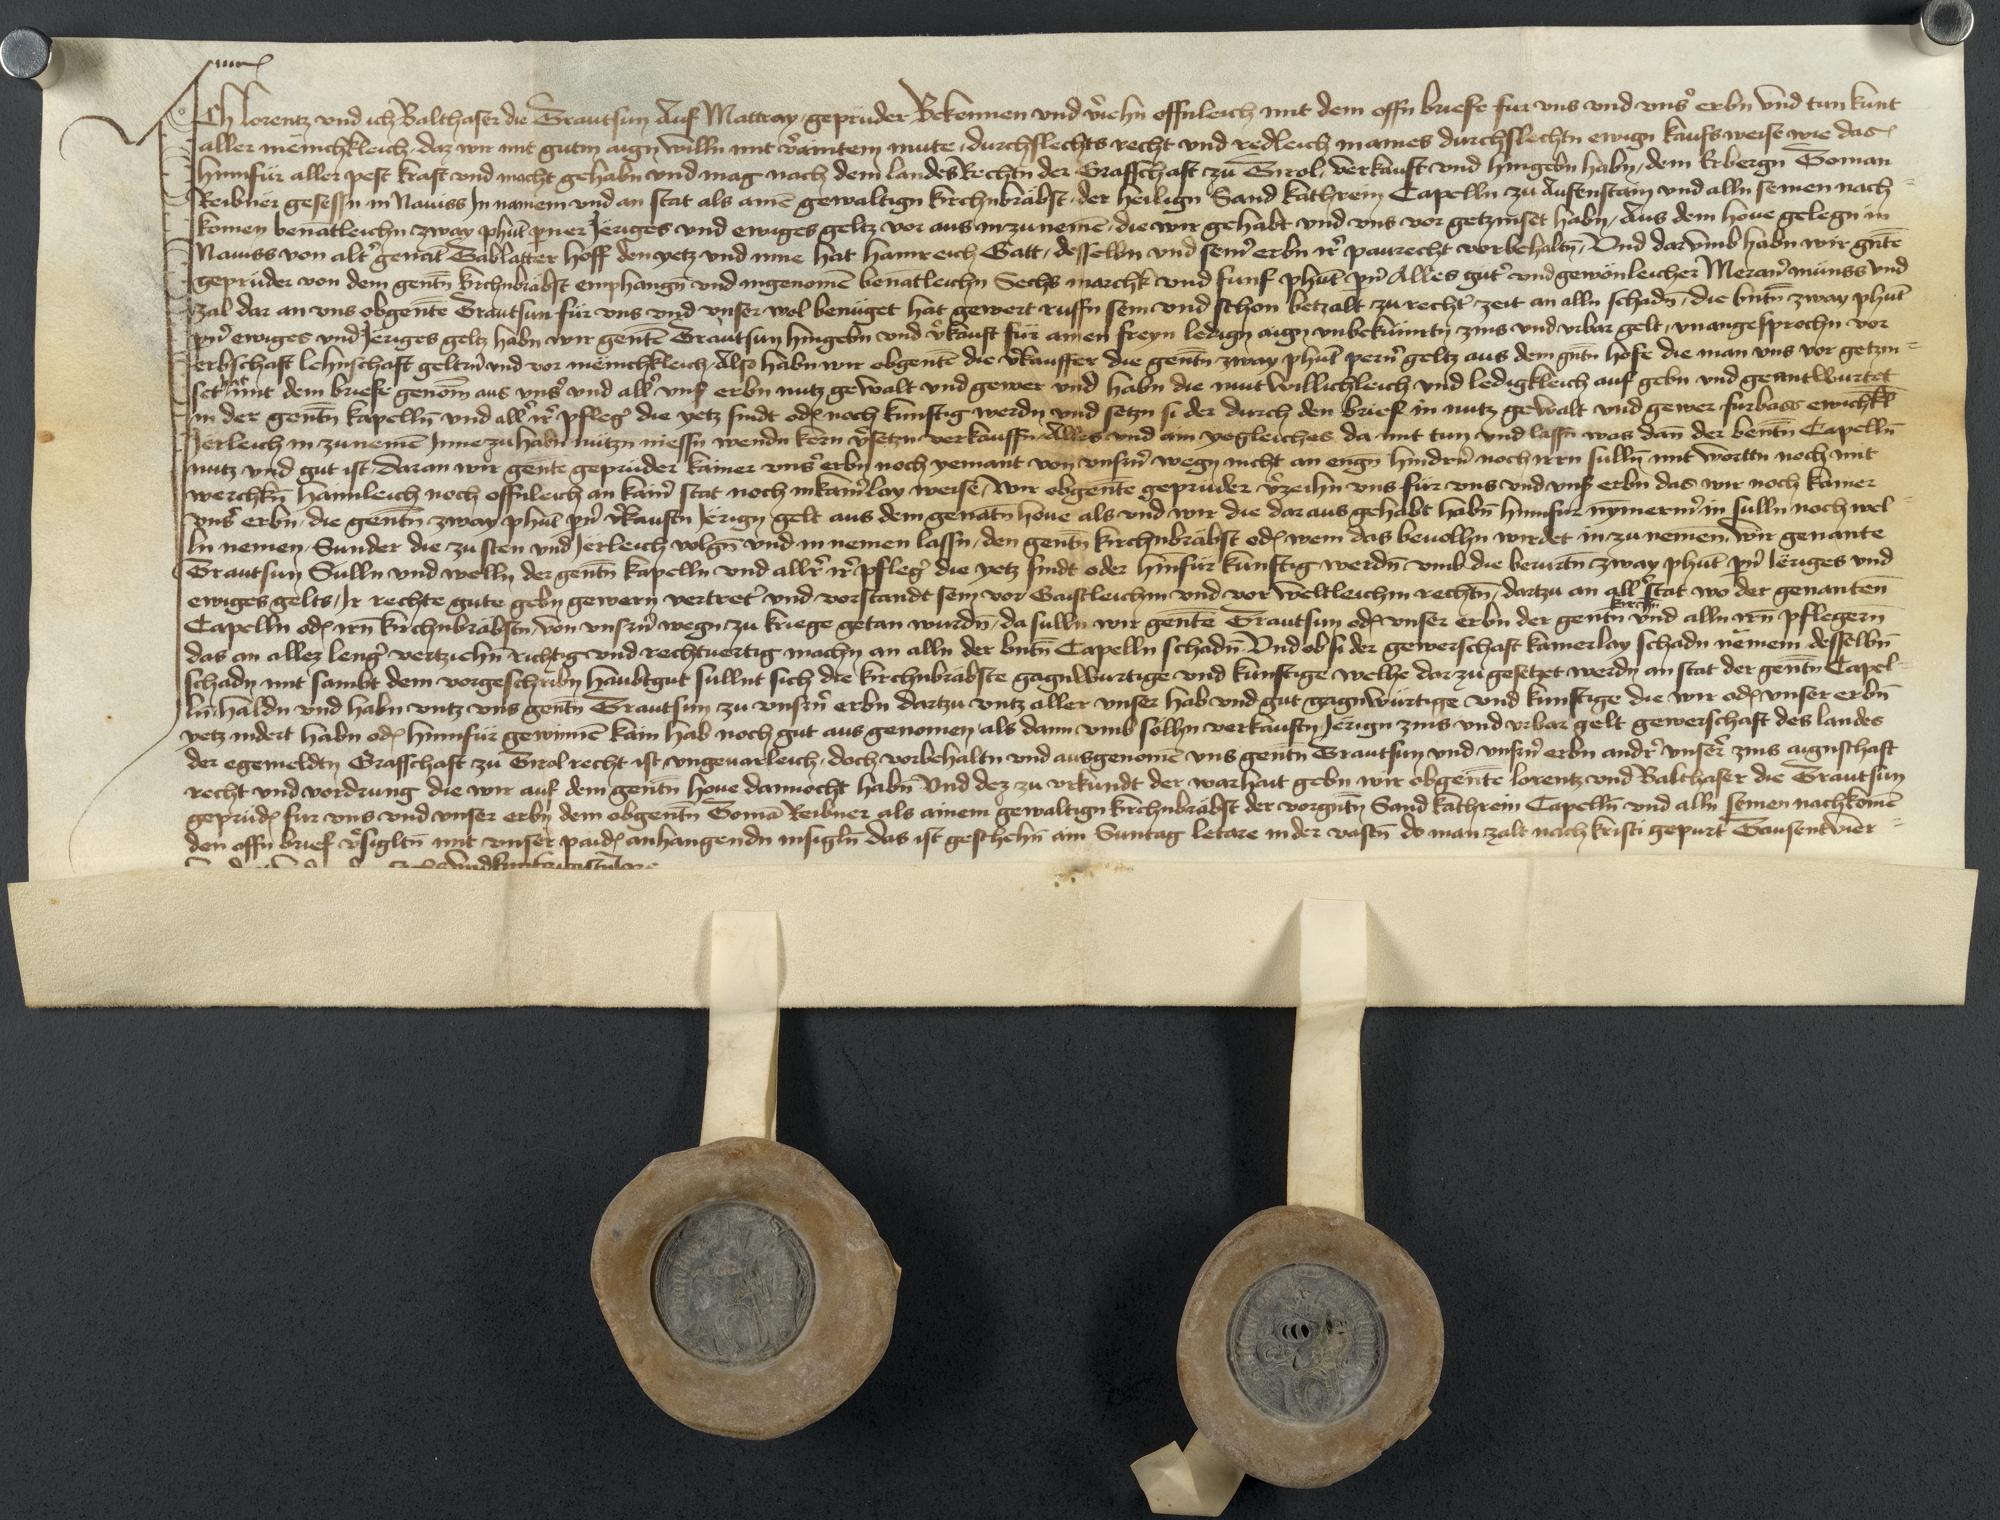 Ich Lorentz vnd ich Balthaser die Trautsun Auf Mattray geprüder Bekennen vnd v̾iehn offnleich mit dem offn briefe für vns vnd vns̾ erbn vnd tun kunt
aller mënichkleich daz wir mit gutm aign willn mit v̾aintem mute durchslechts recht vnd redleich in aines durchslechtn ewign kaufs weise wie das
hinnfür aller pest kraft vnd macht gehabn vnd mag nach dem landes Rechtn der Graffschaft zu Tirol verkauft vnd hingebn habn dem Erbergn Toman
Reibner gesessn in Nauiss Jn namem vnd an stat als aine gewaltign kirchnbräbst der heilign Sand kathrein Capelln zu Aufenstain vnd alln seinen nach-
komen benantleichn zway phūt pner Järiges vnd ewiges geltz vor aus in zu nemē die wir gehabt vnd vns vor getzinset habn Aus dem houe gelegn in
Nauiss von alt̾ genāt Gablatter hoff den yetz vnd inne hat hainreich Gatt desselbn vnd sein̾ erbn ir̾ paurecht vorbehaltn Vnd darvmb habn wir gnte
geprüder von dem gentn kirchnbräbst emphangn vnd ingenomē benātleichn Sechs marchk vnd fünf phūt pn̾ Alles gut̾ vnd gewönleicher Meran̾ münss vnd
zal dar an vns obgente Trautsun für vns vnd vnser wol benüget hat gewert ruffn sein vnd schon betzalt zu recht̾ zeit an alln schadn die bntn zway phūt
pn̾ ewiges vnd Järiges geltz habn wir gente Trautsun hingebn vnd v̾kauft für ainen freyn ledign aign vnbekümrtn zins vnd vrbar gelt vnangesprochn vor
erbschaft lehnschaft geltn̾ vnd vor mënichkleich Also habn wir obgente die v̾kauffer die gentn zway phūt pern̾ geltz aus dem gntn hofe die man vns vor getzin-
set hat mit dem briefe genom̄ aus vns̾ vnd all̾ vns̾ erbn nutz gewalt vnd gewer vnd habn die mutwillichleich vnd ledigkleich auf gebn vnd geantwurtet
in der gentn kapelln vnd all̾ ir̾ pfleg̾ die yetz sindt od̾ noch künftig werdn vnd setzn si der durch den brief in nutz gewalt vnd gewer fürbass ewichkl̄
Jerleich in zu nemē Jnne zu habn nützn niessn wendn kern v̾setzn verkauffn Alles vnd ain yegleiches da mit tun vnd lassn was dan̄ der bentn Capelln
nutz vnd gut ist daran wir gente geprüder kainer vns̾ erbn noch yemant von vnsrn̾ wegn nicht an engn hindrn̾ noch irrn sulln mit worttn noch mit
werchkn haimleich noch offnleich an kain̾ stat noch in kain̾lay weise Wir obgente geprüder v̾zeihn vns für vns vnd vns̾ erbn das wir noch kainer
vns̾ erbn die gentn zway phūt pn̾ v̾kauftn Järign gelt aus dem genātn houe als vnd wir die dar aus gehabt habn hinnfür nymerm̾ in sulln noch wel-
ln nemen Sunder die zu sten vnd Järleich volgn vnd in nemen lassn den gentn kirchnbräbst od̾ wem das beuolhn wirdet in zu nemen Wir genante
Trautsun Sulln vnd welln der gentn kapelln vnd allr̾ ir̾ pfleg̾ die yetz sindt oder hinfür künftig werdn vmb die berürtn zway phūt pn̾ Järiges vnd
ewiges gelts Jr rechte gute gebn gewern vertret̾ vnd vorstandt sein vor Gaistleichm vnd vor weltleichm rechtn dartzu an all̾ stat wo der genanten
Capelln od̾ irn kirchnbräbstn von vnsrn̾ wegn zu kriege getan wurdn da sulln wir gente Trautsun od̾ vnser erbn der gentn kirchn vnd alln irn pflegern
das an allez leng̾ vertziehn richtig vnd rechtuertig machn an alln der bntn Capelln schadn Vnd ob si der gewerschaft kainerlay schadn nëmem desselbn
schadn mit sambt dem vorgeschribn haubtgut sullnt sich die kirchnbräbste gagnwürtige vnd künftige welhe dar zu gesetzet werdn an stat der gentn Capel-
ln haldn vnd habn vntz vns gentn Trautsun zu vnsrn̾ erbn dartzu vntz aller vnser hab vnd gut gagnwürtige vnd künftige die wir od̾ vnser erbn
yetz indert habn od̾ hinnfür gewinnē kain hab noch gut aus genomen als dann vmb solhn verkauftn Järign zins vnd vrbar gelt gewerschaft des landes
der egemeldtn Graffschaft zu Tirol recht ist vngeuarleich doch vorbehaltn vnd ausgenomē vns gentn Trautsun vnd vnsrn̾ erbn andr̾ vnser̾ zins aignschaft
recht vnd vordrung die wir auf dem gentn houe dannocht habn Vnd dez zu vrkundt der warhait gebn wir obgente Lorentz vnd Balthaser die Trautsun
geprüd̾ für vns vnd vnser erbn dem obgentn Tomā Reibner als ainem gewaltign kirchnbräbst der vorgntn Sand kathrein Capelln vnd alln seinen nachkomē
den offn brief v̾sigltn mit vnser paid̾ anhangendn insigln das ist geschehn am Suntag letare in der vastn do man zalt nach kristi gepurt Tausent vier-